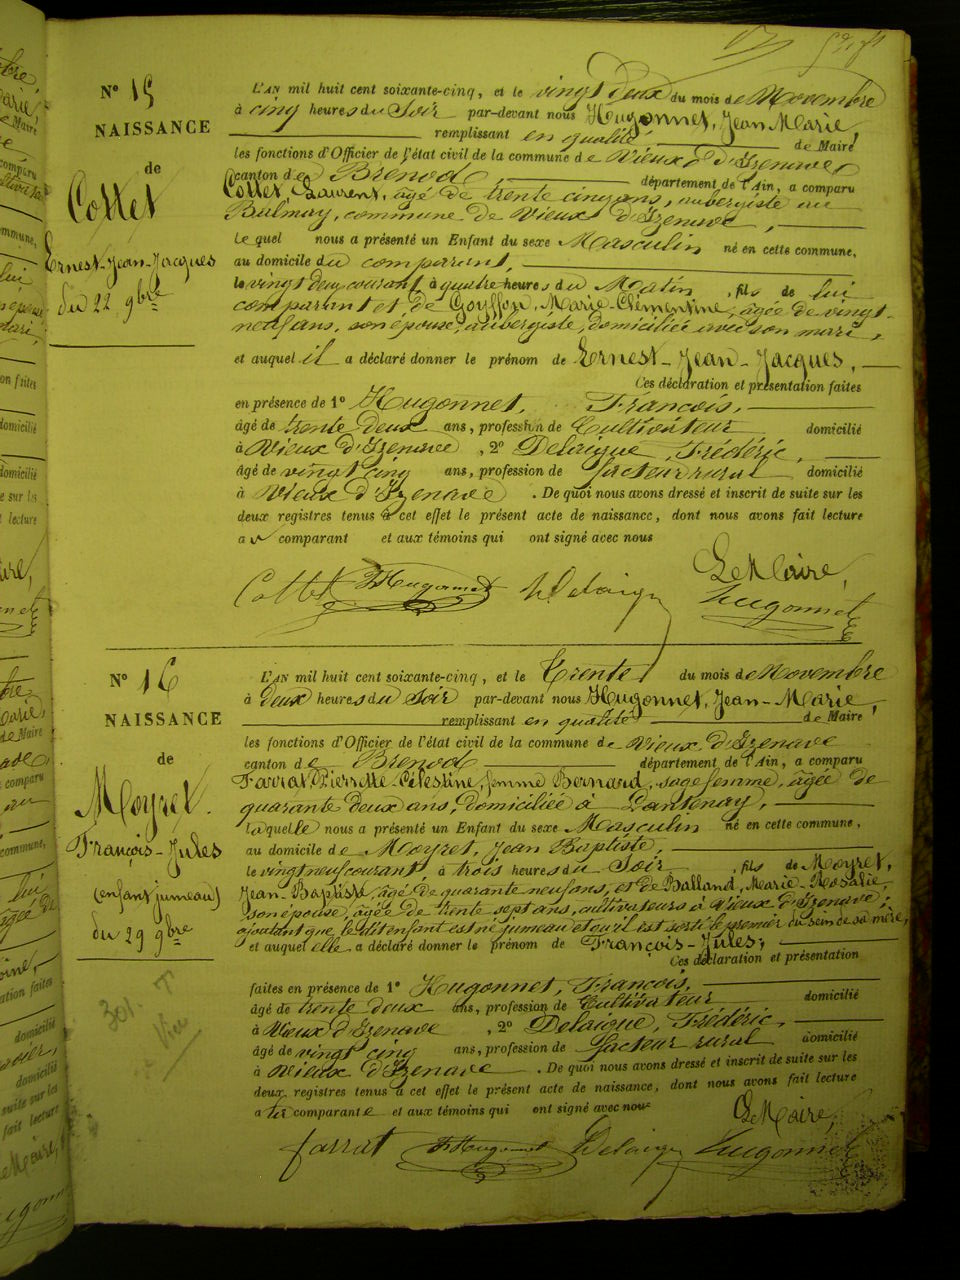 N° 15
NAISSANCE
de
Cottet
Ernest-Jean-Jacques
du 22 9bre
L'AN mil huit cent soixante-cinq, et le vingt deux du mois de Novembre
à cinq heures du Soir par-devant nous Hugonnet, Jean Marie,
remplissant en qualité de Maire
les fonctions d'Officier de l'état civil de la commune de Vieux d'Izenave
canton de Brénod, département de l'Ain, a comparu
Cottet Laurent, âgé de trente cinq ans, aubergiste au
Balmay, commune de Vieux d'Izenave,
le quel nous a présenté un Enfant du sexe Masculin né en cette commune,
au domicile du comparant,
le vingt deux courant à quatre heures du Matin, fils de lui
comparant et de Goyffon, Marie-Clémentine, âgée de vingt-
neuf ans, son épouse, aubergiste, domiciliée avec son mari,
et auquel il a déclaré donner le prénom de Ernest-Jean-Jacques,
Ces déclaration et présentation faites
en présence de 1° Hugonnet, François,
âgé de trente deux ans, profession de Cultivateur domicilié
à Vieux d'Izenave, 2° Delaigue, Frédéric,
âgé de vingt cinq ans, profession de facteur rural domicilié
à Vieux d'Izenave. De quoi nous avons dressé et inscrit de suite sur les
deux registres tenus à cet effet le présent acte de naissance, dont nous avons fait lecture
au comparant et aux témoins qui ont signé avec nous
Le Maire,
Cottet F Hugonnet Delaigue Hugonnet
N° 16
NAISSANCE
de
Moyret
François-Jules
(enfant jumeau)
du 29 9bre
L'AN mil huit cent soixante-cinq, et le Trente du mois de Novembre
à deux heures du Soir par-devant nous Hugonnet, Jean-Marie,
remplissant en qualité de Maire
les fonctions d'Officier de l'état civil de la commune de Vieux d'Izenave
canton de Brenod département de l'Ain, a comparu
Farrat, Pierrette-Célestine, femme Bernard, sage femme, âgée de
quarante deux ans, domiciliée à Lantenay,
laquelle nous a présenté un Enfant du sexe Masculin né en cette commune,
au domicile de Moyret, Jean Baptiste,
le vingt neuf courant, à trois heures du Soir, fils de Moyret,
Jean-Baptiste, âgé de quarante neuf ans, et de Balland, Marie-Rosalie,
son épouse, âgée de trente sept ans, cultivateurs à Vieux d'Izenave;
ajoutant que le dit enfant est né jumeau et qu'il est sorti le premier du sein de sa mère,
et auquel elle a déclaré donner le prénom de François-Jules;
Ces déclaration et présentation
faites en présence de 1° Hugonnet, François,
âgé de trente deux ans, profession de Cultivateur domicilié
à Vieux d'Izenave, 2° Delaigue, Frédéric,
âgé de vingt cinq ans, profession de facteur rural domicilié
à Vieux d'Izenave. De quoi nous avons dressé et inscrit de suite sur les
deux registres tenus à cet effet le présent acte de naissance, dont nous avons fait lecture
a la comparante et aux témoins qui ont signé avec nous
Le Maire,
farrat F Hugonnet Delaigue Hugonnet